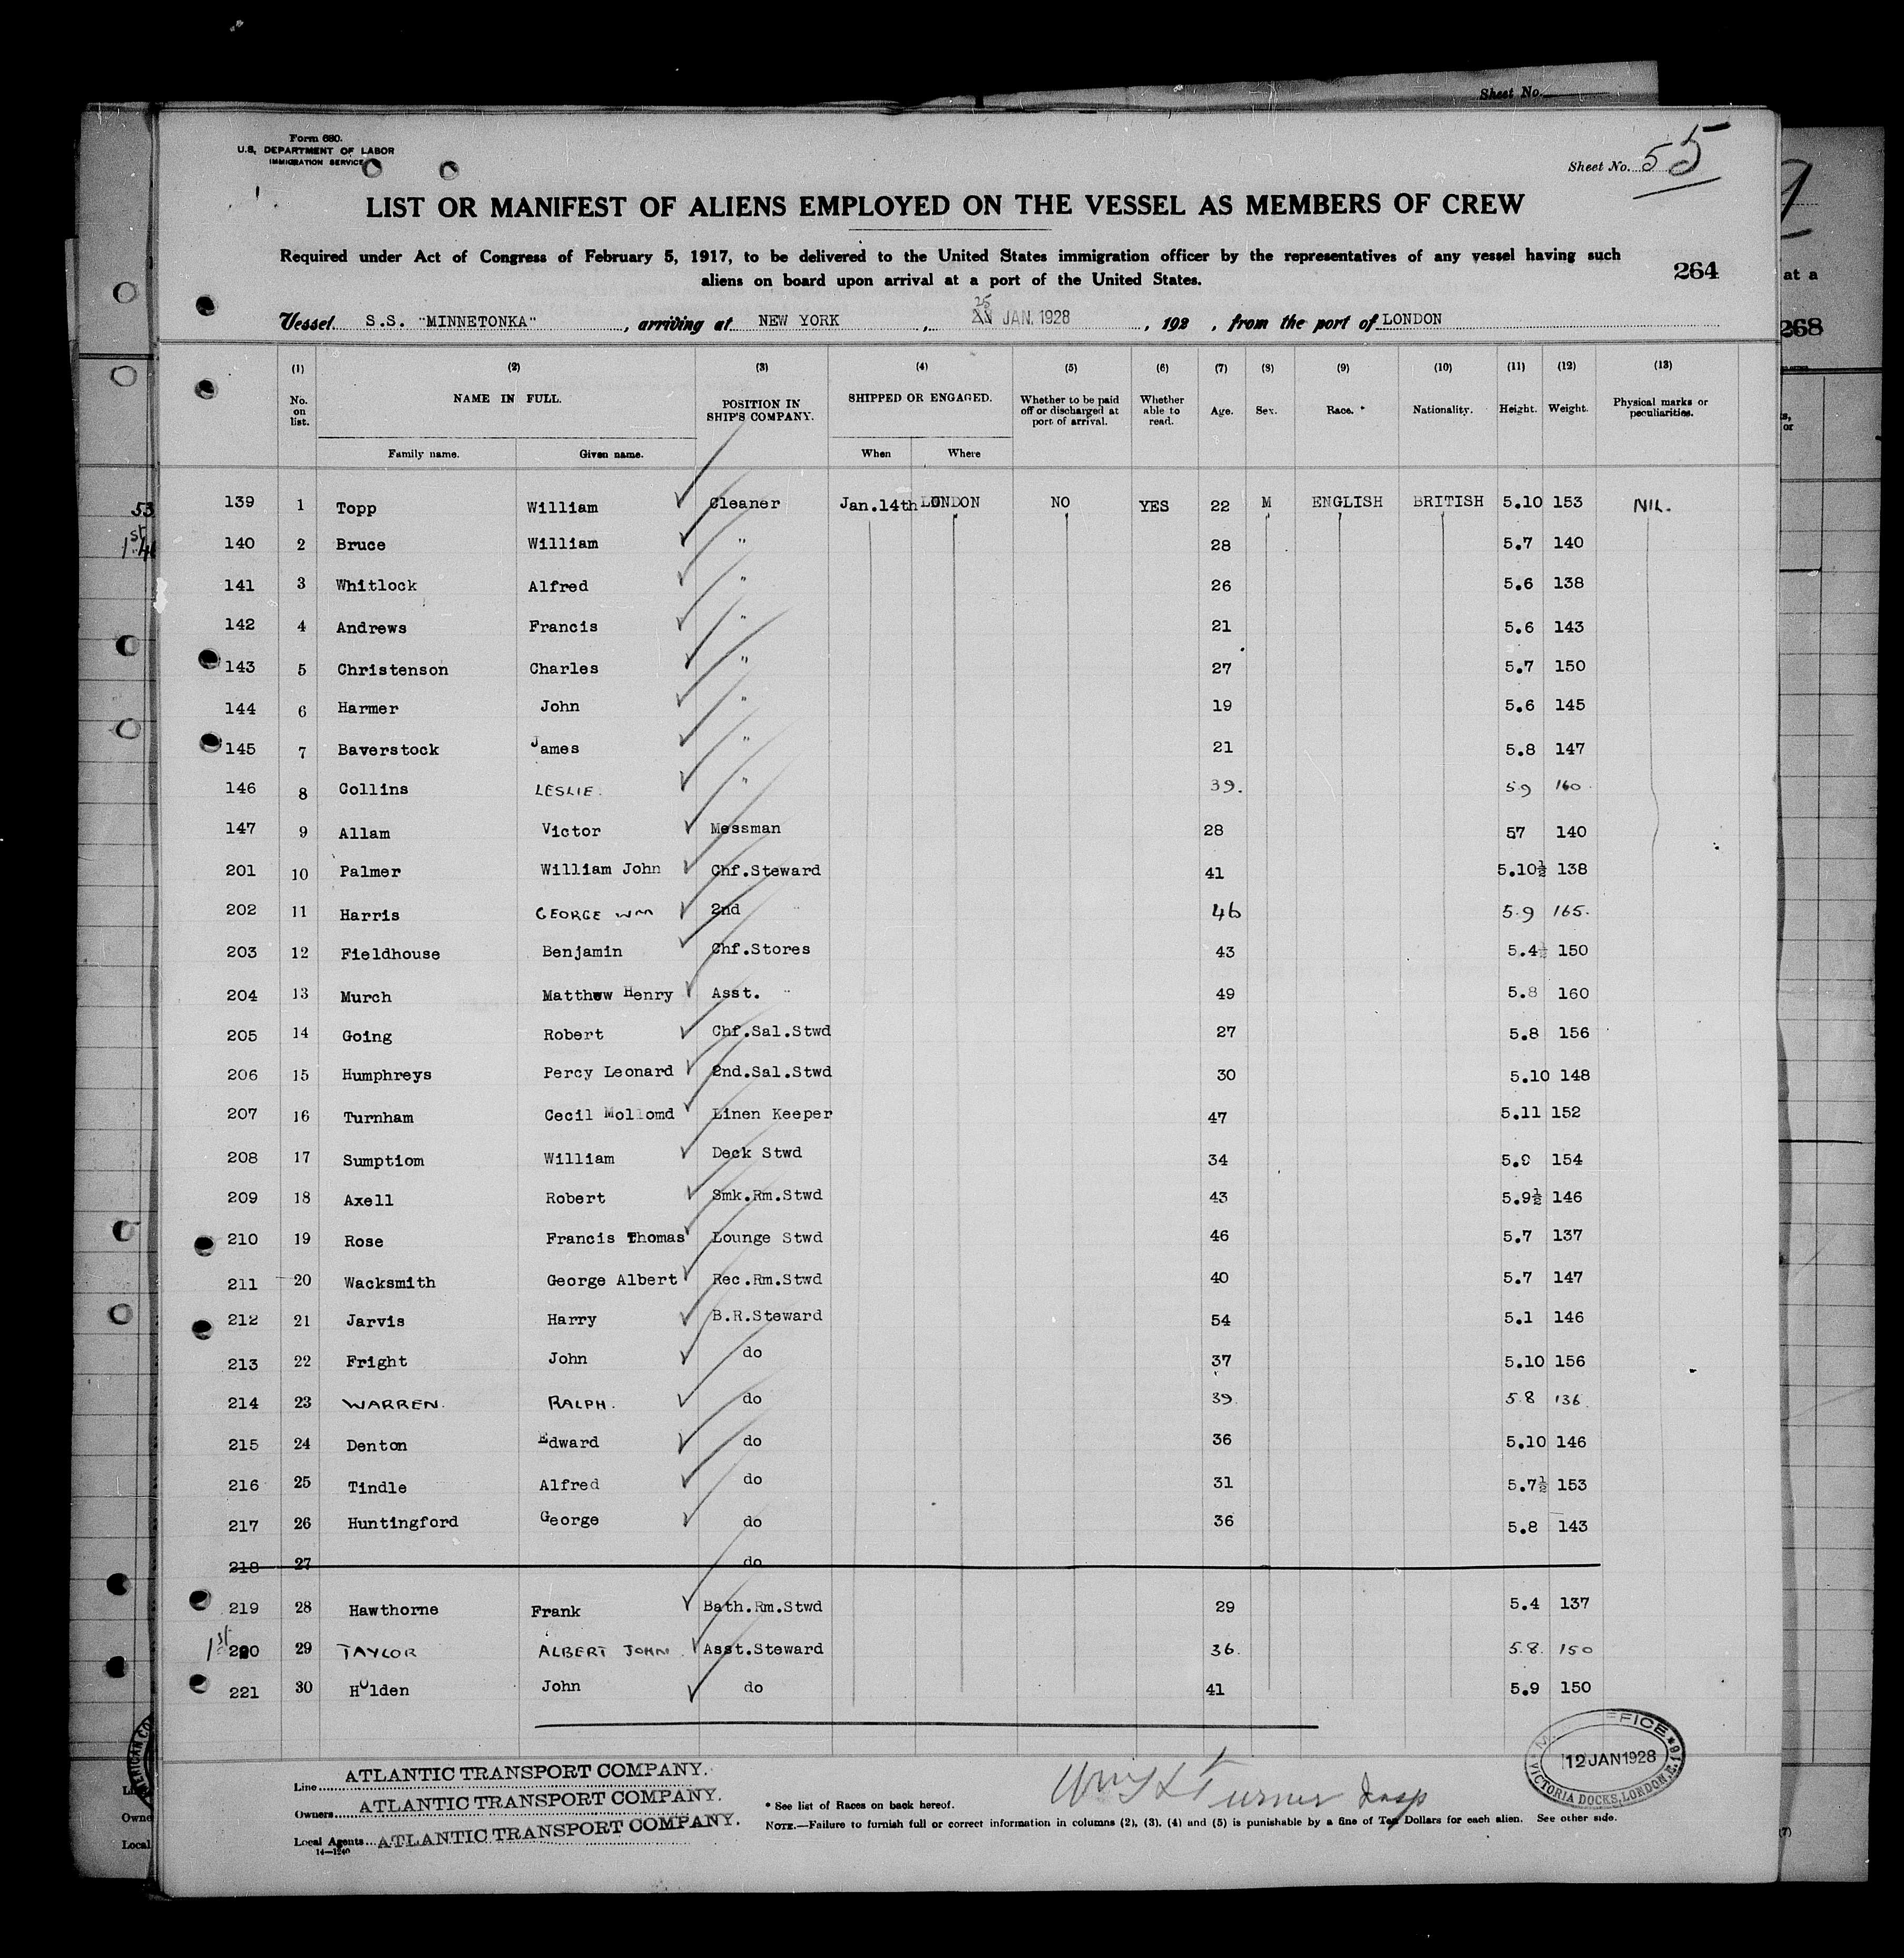 Sheet No.
Form 680.
U.S. DEPARTMENT OF LABOR
IMMIGRATION SERVICE
Sheet No. 55
LIST OR MANIFEST OF ALIENS EMPLOYED ON THE VESSEL AS MEMBERS OF CREW
Required under Act of Congress of February 5, 1917, to be delivered to the United States immigration officer by the representatives of any vessel having such
aliens on board upon arrival at a port of the United States.
264
at a
268
Vessel S.S. "MINNETONKA", arriving at NEW YORK, 25 JAN. 1928, 192 , from the port of LONDON
(1) (2) (3) (4) (5) (6) (7) (8) (9) (10) (11) (12) (13)
No. on list. NAME IN FULL. POSITION IN SHIP'S COMPANY. SHIPPED OR ENGAGED. Whether to be paid off or discharged at port of arrival. Whether able to read. Age. Sex. Race. * Nationality. Height. Weight. Physical marks or peculiarities.
Family name. Given name. When Where
139 1 Topp William Cleaner Jan.14th LONDON NO YES 22 M ENGLISH BRITISH 5.10 153 NIL.
140 2 Bruce William " 28 5.7 140
141 3 Whitlock Alfred " 26 5.6 138
142 4 Andrews Francis " 21 5.6 143
143 5 Christenson Charles " 27 5.7 150
144 6 Harmer John " 19 5.6 145
145 7 Baverstock James " 21 5.8 147
146 8 Collins LESLIE. " 39. 5.9 160.
147 9 Allam Victor Messman 28 57 140
201 10 Palmer William John Chf.Steward 41 5.10½ 138
202 11 Harris GEORGE WM 2nd " 46 5.9 165.
203 12 Fieldhouse Benjamin Chf.Stores 43 5.4½ 150
204 13 Murch Matthew Henry Asst. " 49 5.8 160
205 14 Going Robert Chf.Sal.Stwd 27 5.8 156
206 15 Humphreys Percy Leonard 2nd.Sal.Stwd 30 5.10 148
207 16 Turnham Cecil Mollomd Linen Keeper 47 5.11 152
208 17 Sumptiom William Deck Stwd 34 5.9 154
209 18 Axell Robert Smk.Rm.Stwd 43 5.9½ 146
210 19 Rose Francis Thomas Lounge Stwd 46 5.7 137
211 20 Wacksmith George Albert Rec.Rm.Stwd 40 5.7 147
212 21 Jarvis Harry B.R.Steward 54 5.1 146
213 22 Fright John do 37 5.10 156
214 23 WARREN. RALPH. do 39. 5.8 136.
215 24 Denton Edward do 36 5.10 146
216 25 Tindle Alfred do 31 5.7½ 153
217 26 Huntingford George do 36 5.8 143
218 27 do
219 28 Hawthorne Frank Bath.Rm.Stwd 29 5.4 137
1st 220 29 TAYLOR ALBERT JOHN. Asst.Steward 36. 5.8. 150
221 30 Holden John do 41 5.9 150
Line ATLANTIC TRANSPORT COMPANY.
Owners ATLANTIC TRANSPORT COMPANY.
Local Agents ATLANTIC TRANSPORT COMPANY.
14—1240
* See list of Races on back hereof.
NOTE.—Failure to furnish full or correct information in columns (2), (3), (4) and (5) is punishable by a fine of Ten Dollars for each alien. See other side.
Turner Insp
12 JAN 1928
VICTORIA DOCKS, LONDON, E.16
53
1st
Owne
Local